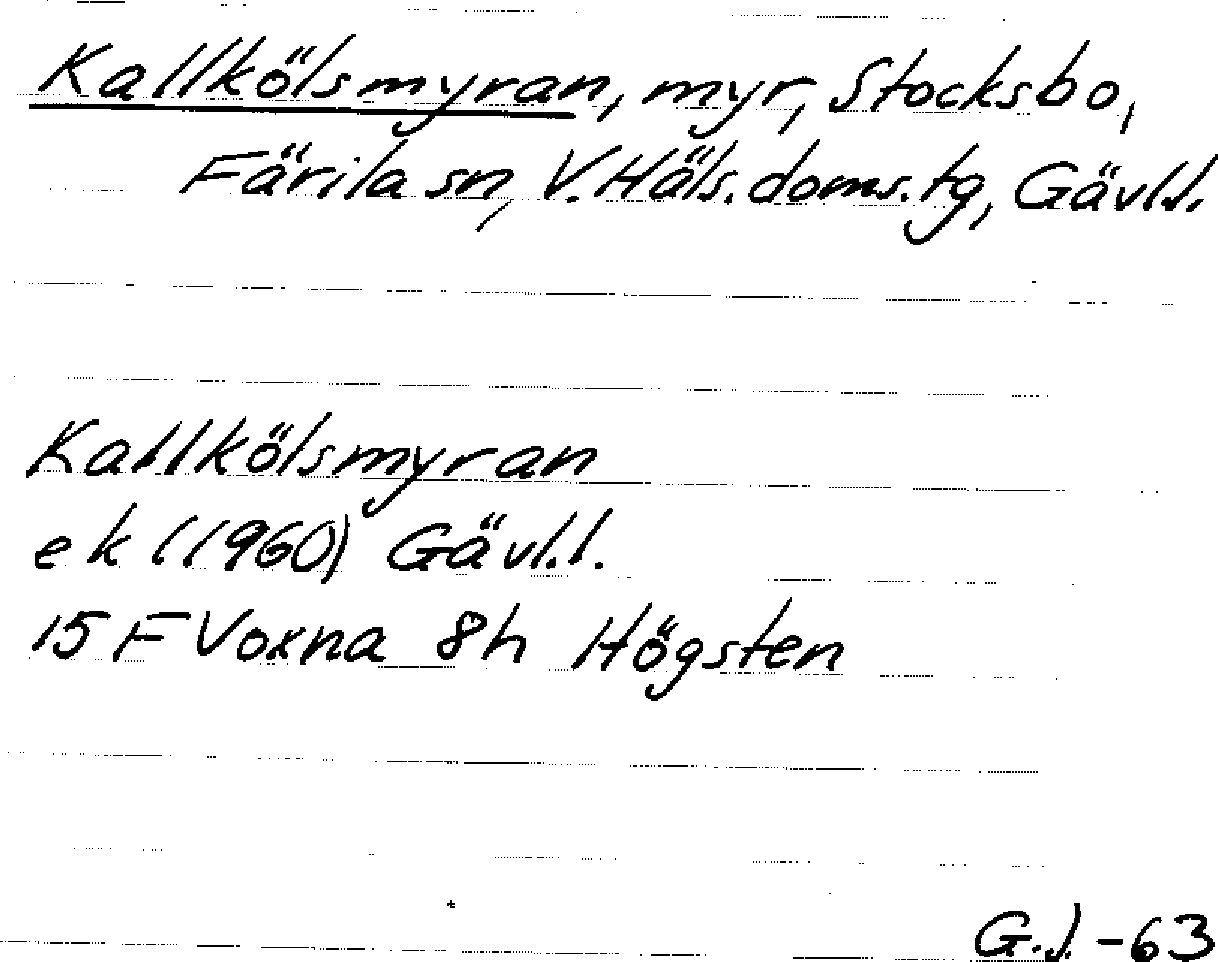 Kallkölsmyran, myr, Stocksbo,
Färila sn, V. Häls. doms. tg, Gävl.l.
Kallkölsmyran
ek (1960) Gävl.l.
15 F Voxna 8h Högsten
G.J. -63